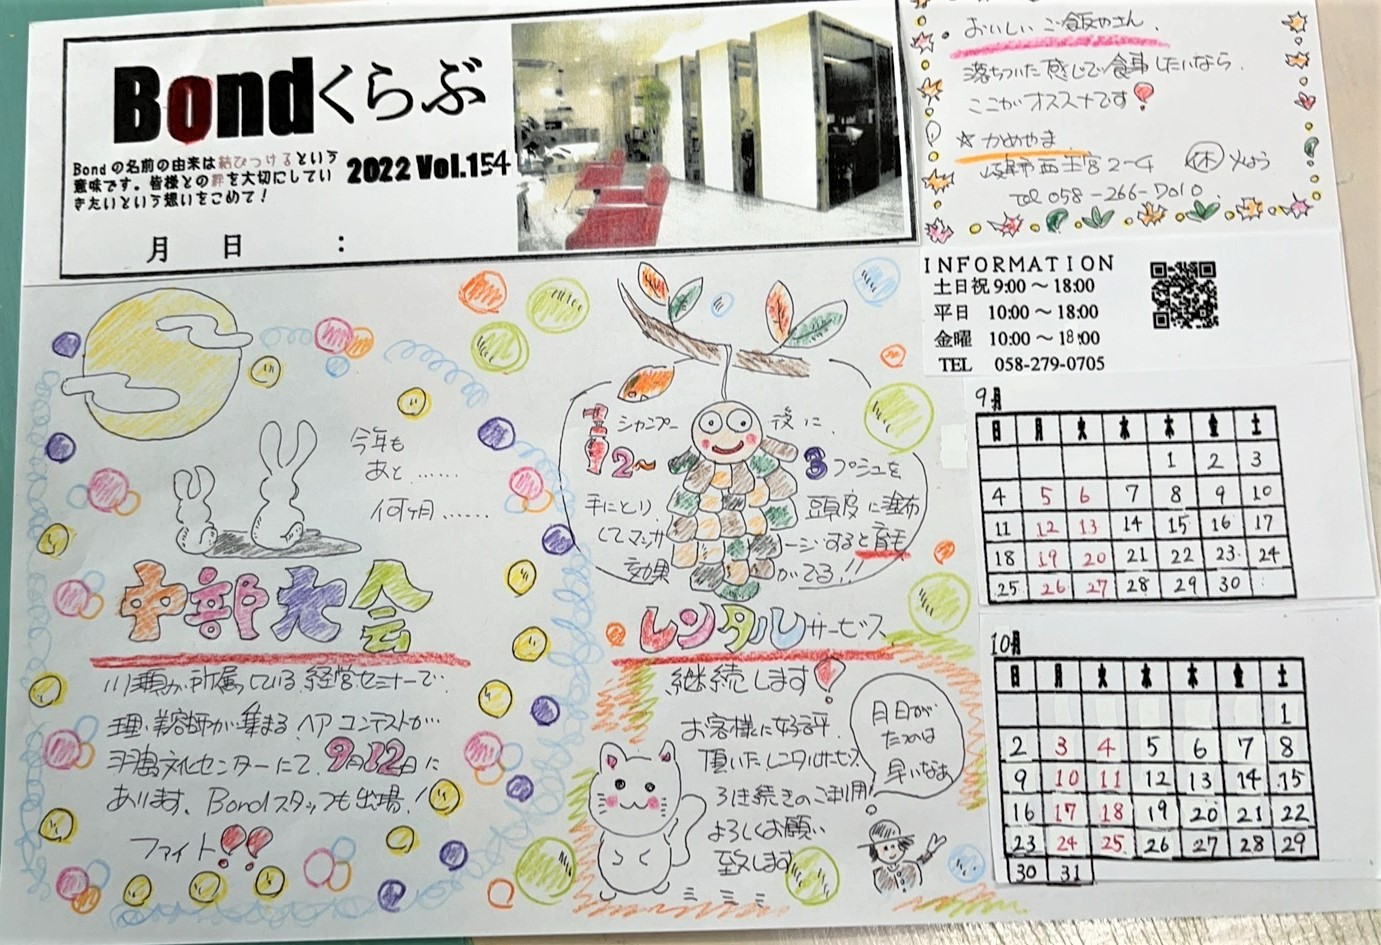 Bondくらぶ
Bondの名前の由来は結びつけるという
意味です。皆様との絆を大切にしてい
きたいという想いをこめて！
2022 Vol.154
月 日 :
おいしいご飯やさん
落ちついた感じで食事したいなら
ここがオススメです！
☆かめやま
岐阜市西王宮2-4 休 火よう
Tel 058-266-7010
INFORMATION
土日祝 9:00～18:00
平日 10:00～18:00
金曜 10:00～18:00
TEL 058-279-0705
今年も
あと……
何ヶ月……
中部大会
川瀬が所属している経営セミナーで
理・美容師が集まるヘアコンテストが
羽島文化センターにて、9月12日に
あります。Bondスタッフも出場！
ファイト!!
シャンプー後に、
2～3プシュを
手にとり、頭皮に塗布
してマッサージすると育毛
効果がでる!!
レンタルサービス
継続します！
お客様に好評
頂いたレンタルサービス
引き続きのご利用
よろしくお願い
致します
月日が
たつのは
早いなあ
9月
日 月 火 水 木 金 土
1 2 3
4 5 6 7 8 9 10
11 12 13 14 15 16 17
18 19 20 21 22 23 24
25 26 27 28 29 30
10月
日 月 火 水 木 金 土
1
2 3 4 5 6 7 8
9 10 11 12 13 14 15
16 17 18 19 20 21 22
23 24 25 26 27 28 29
30 31